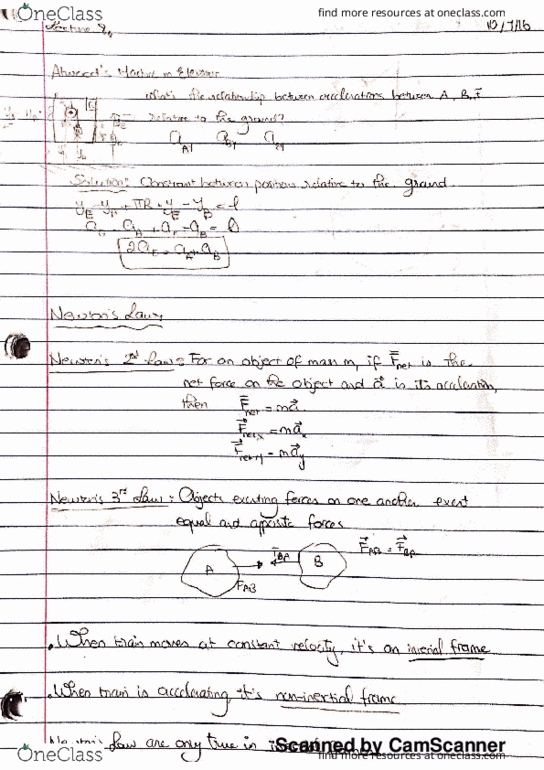 OneClass
find more resources at oneclass.com
Lecture 9
10/7/16
Atwood's Machine in Elevator
What's the relationship between accelerations between A, B, E
relative to the ground?
a_Ay a_By a_Ey
Solution: Constant between positions relative to the ground
y_E - y_A + πR + y_E - y_B = l
a_E - a_A + a_E - a_B = 0
2a_E = a_A + a_B
Newton's Laws
Newton's 2nd Law: For an object of mass m, if F_net is the
net force on the object and a is its acceleration,
then F_net = ma
F_net x = ma_x
F_net y = ma_y
Newton's 3rd Law: Objects exerting forces on one another exert
equal and opposite forces
A F_AB F_BA B F_AB = F_BA
• When train moves at constant velocity, it's an inercial frame
• When train is accelerating it's non-inertial frame
Law are only true in
OneClass
Scanned by CamScanner
find more resources at oneclass.com